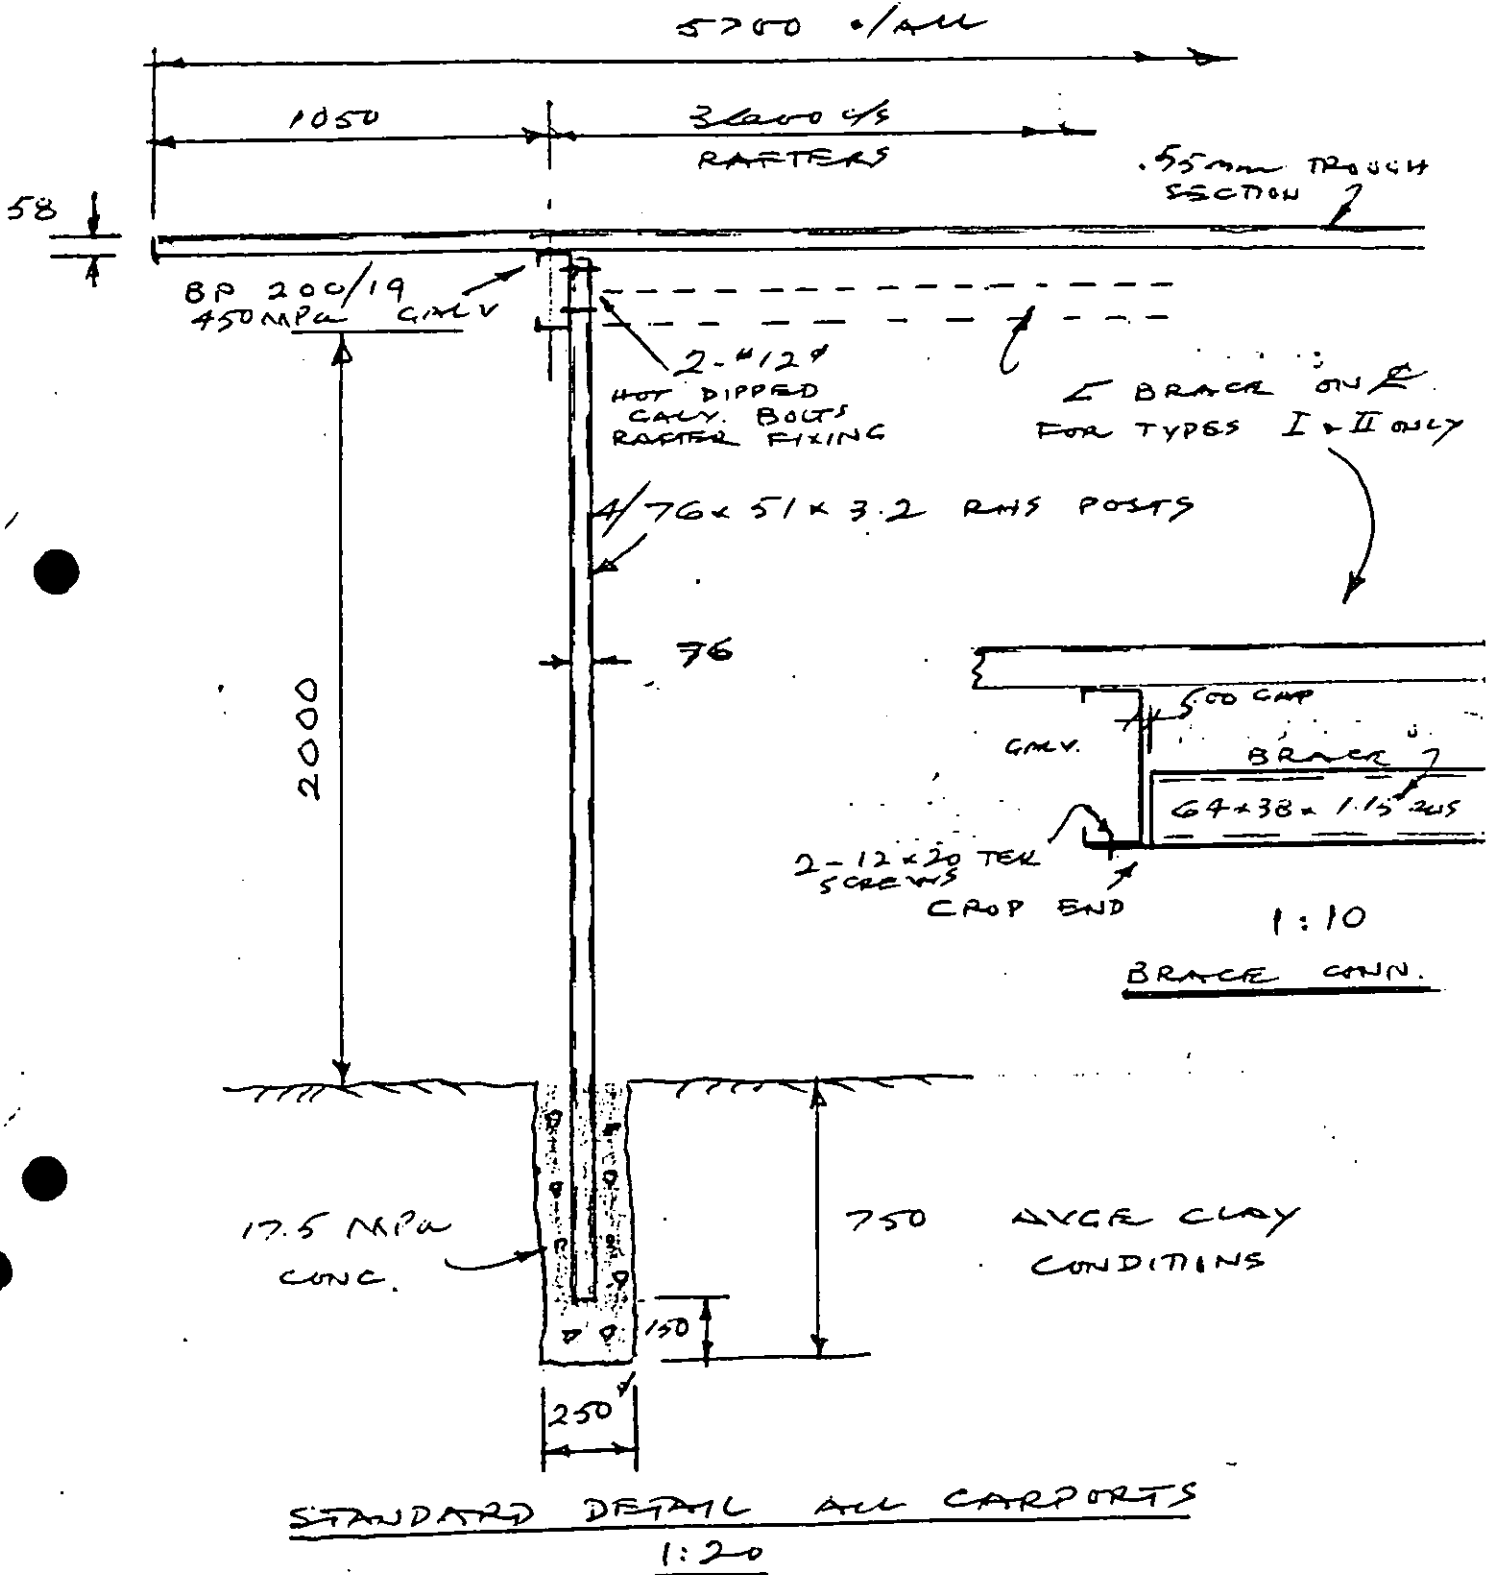 5700 o/ALL
1050
3600 c/s
RAFTERS
.55mm TROUGH
SECTION
58
BP 200/19
450 MPa GALV
2-M12ø
HOT DIPPED
GALV. BOLTS
RAFTER FIXING
BRACE ON ℄
FOR TYPES I & II ONLY
4/76 x 51 x 3.2 RHS POSTS
76
2000
5.00 GAP
GALV.
BRACE
64 x 38 x 1.15
2-12 x 20 TEK
SCREWS
CROP END
1:10
BRACE CONN.
17.5 MPa
CONC.
750 AVGE CLAY
CONDITIONS
150
250ø
STANDARD DETAIL ALL CARPORTS
1:20